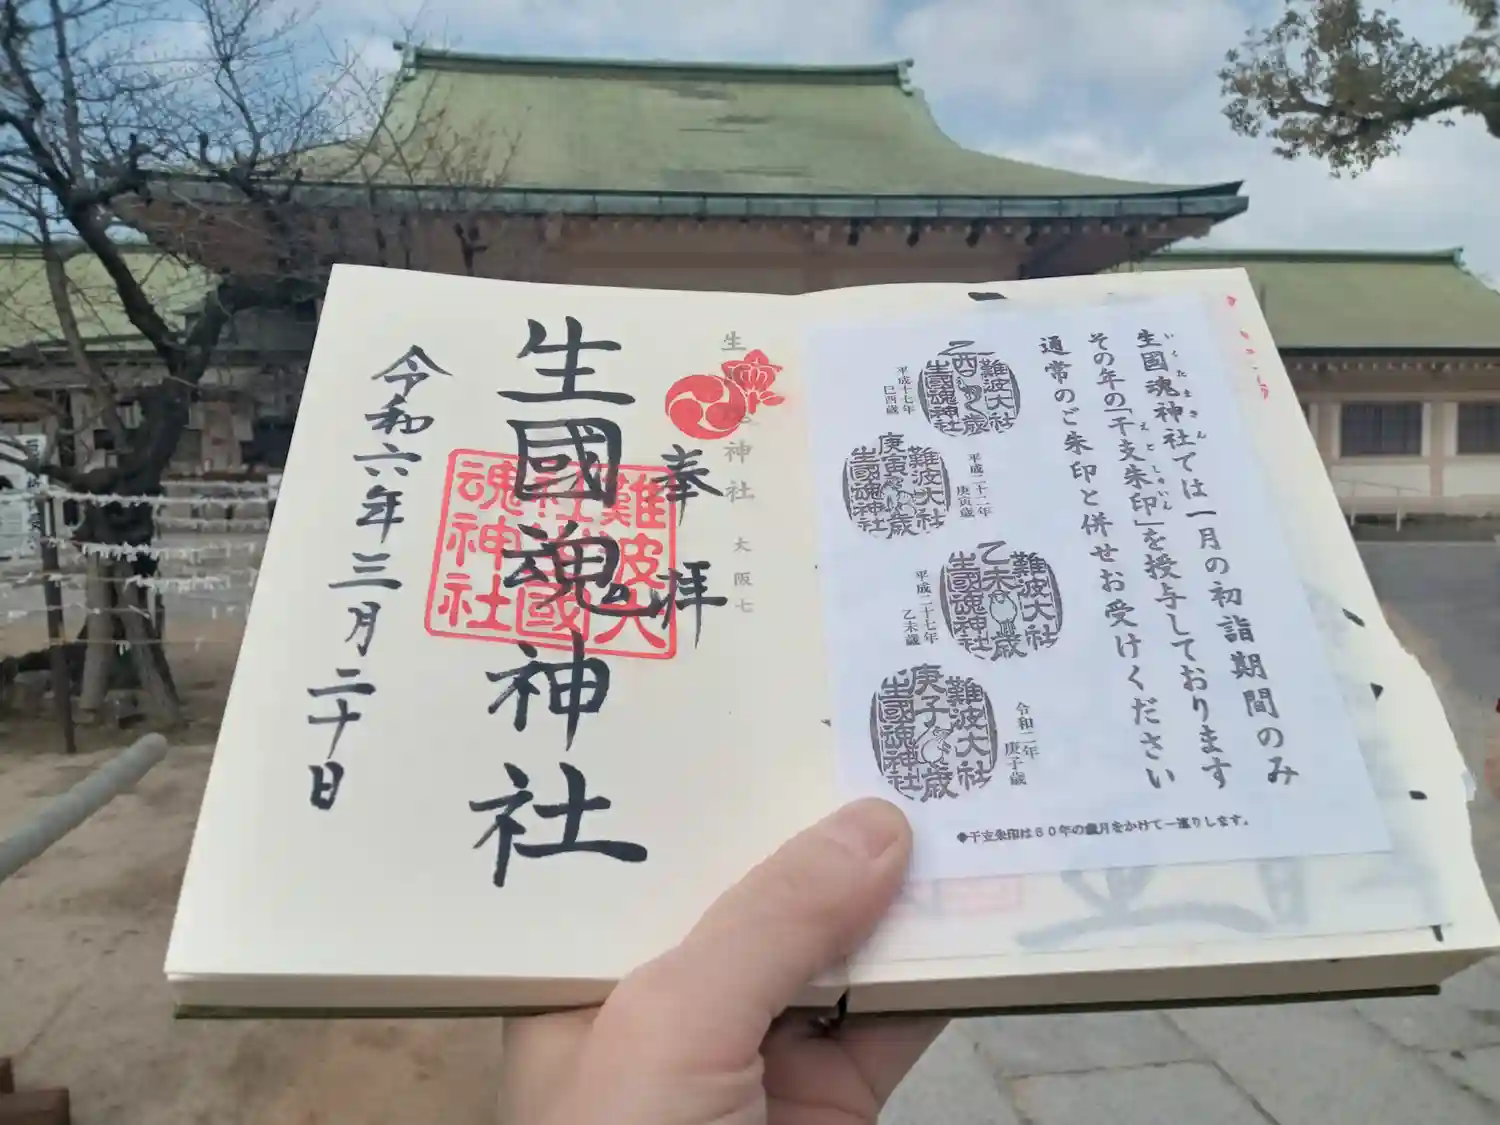 いくたまさん
生國魂神社では一月の初詣期間のみ
えとしゅいん
その年の「干支朱印」を授与しております
通常のご朱印と併せお受けください
難波大社
乙酉歳
生國魂神社
平成十七年
巳酉歳
平成二十二年
庚寅歳
難波大社
庚寅歳
生國魂神社
難波大社
乙未歳
生國魂神社
平成二十七年
乙未歳
令和二年
庚子歳
難波大社
庚子歳
生國魂神社
◆干支朱印は60年の歳月をかけて一巡りします。
奉拝
生國魂神社
令和六年三月二十日
難波大
社生國
魂神社
神社 大阪七